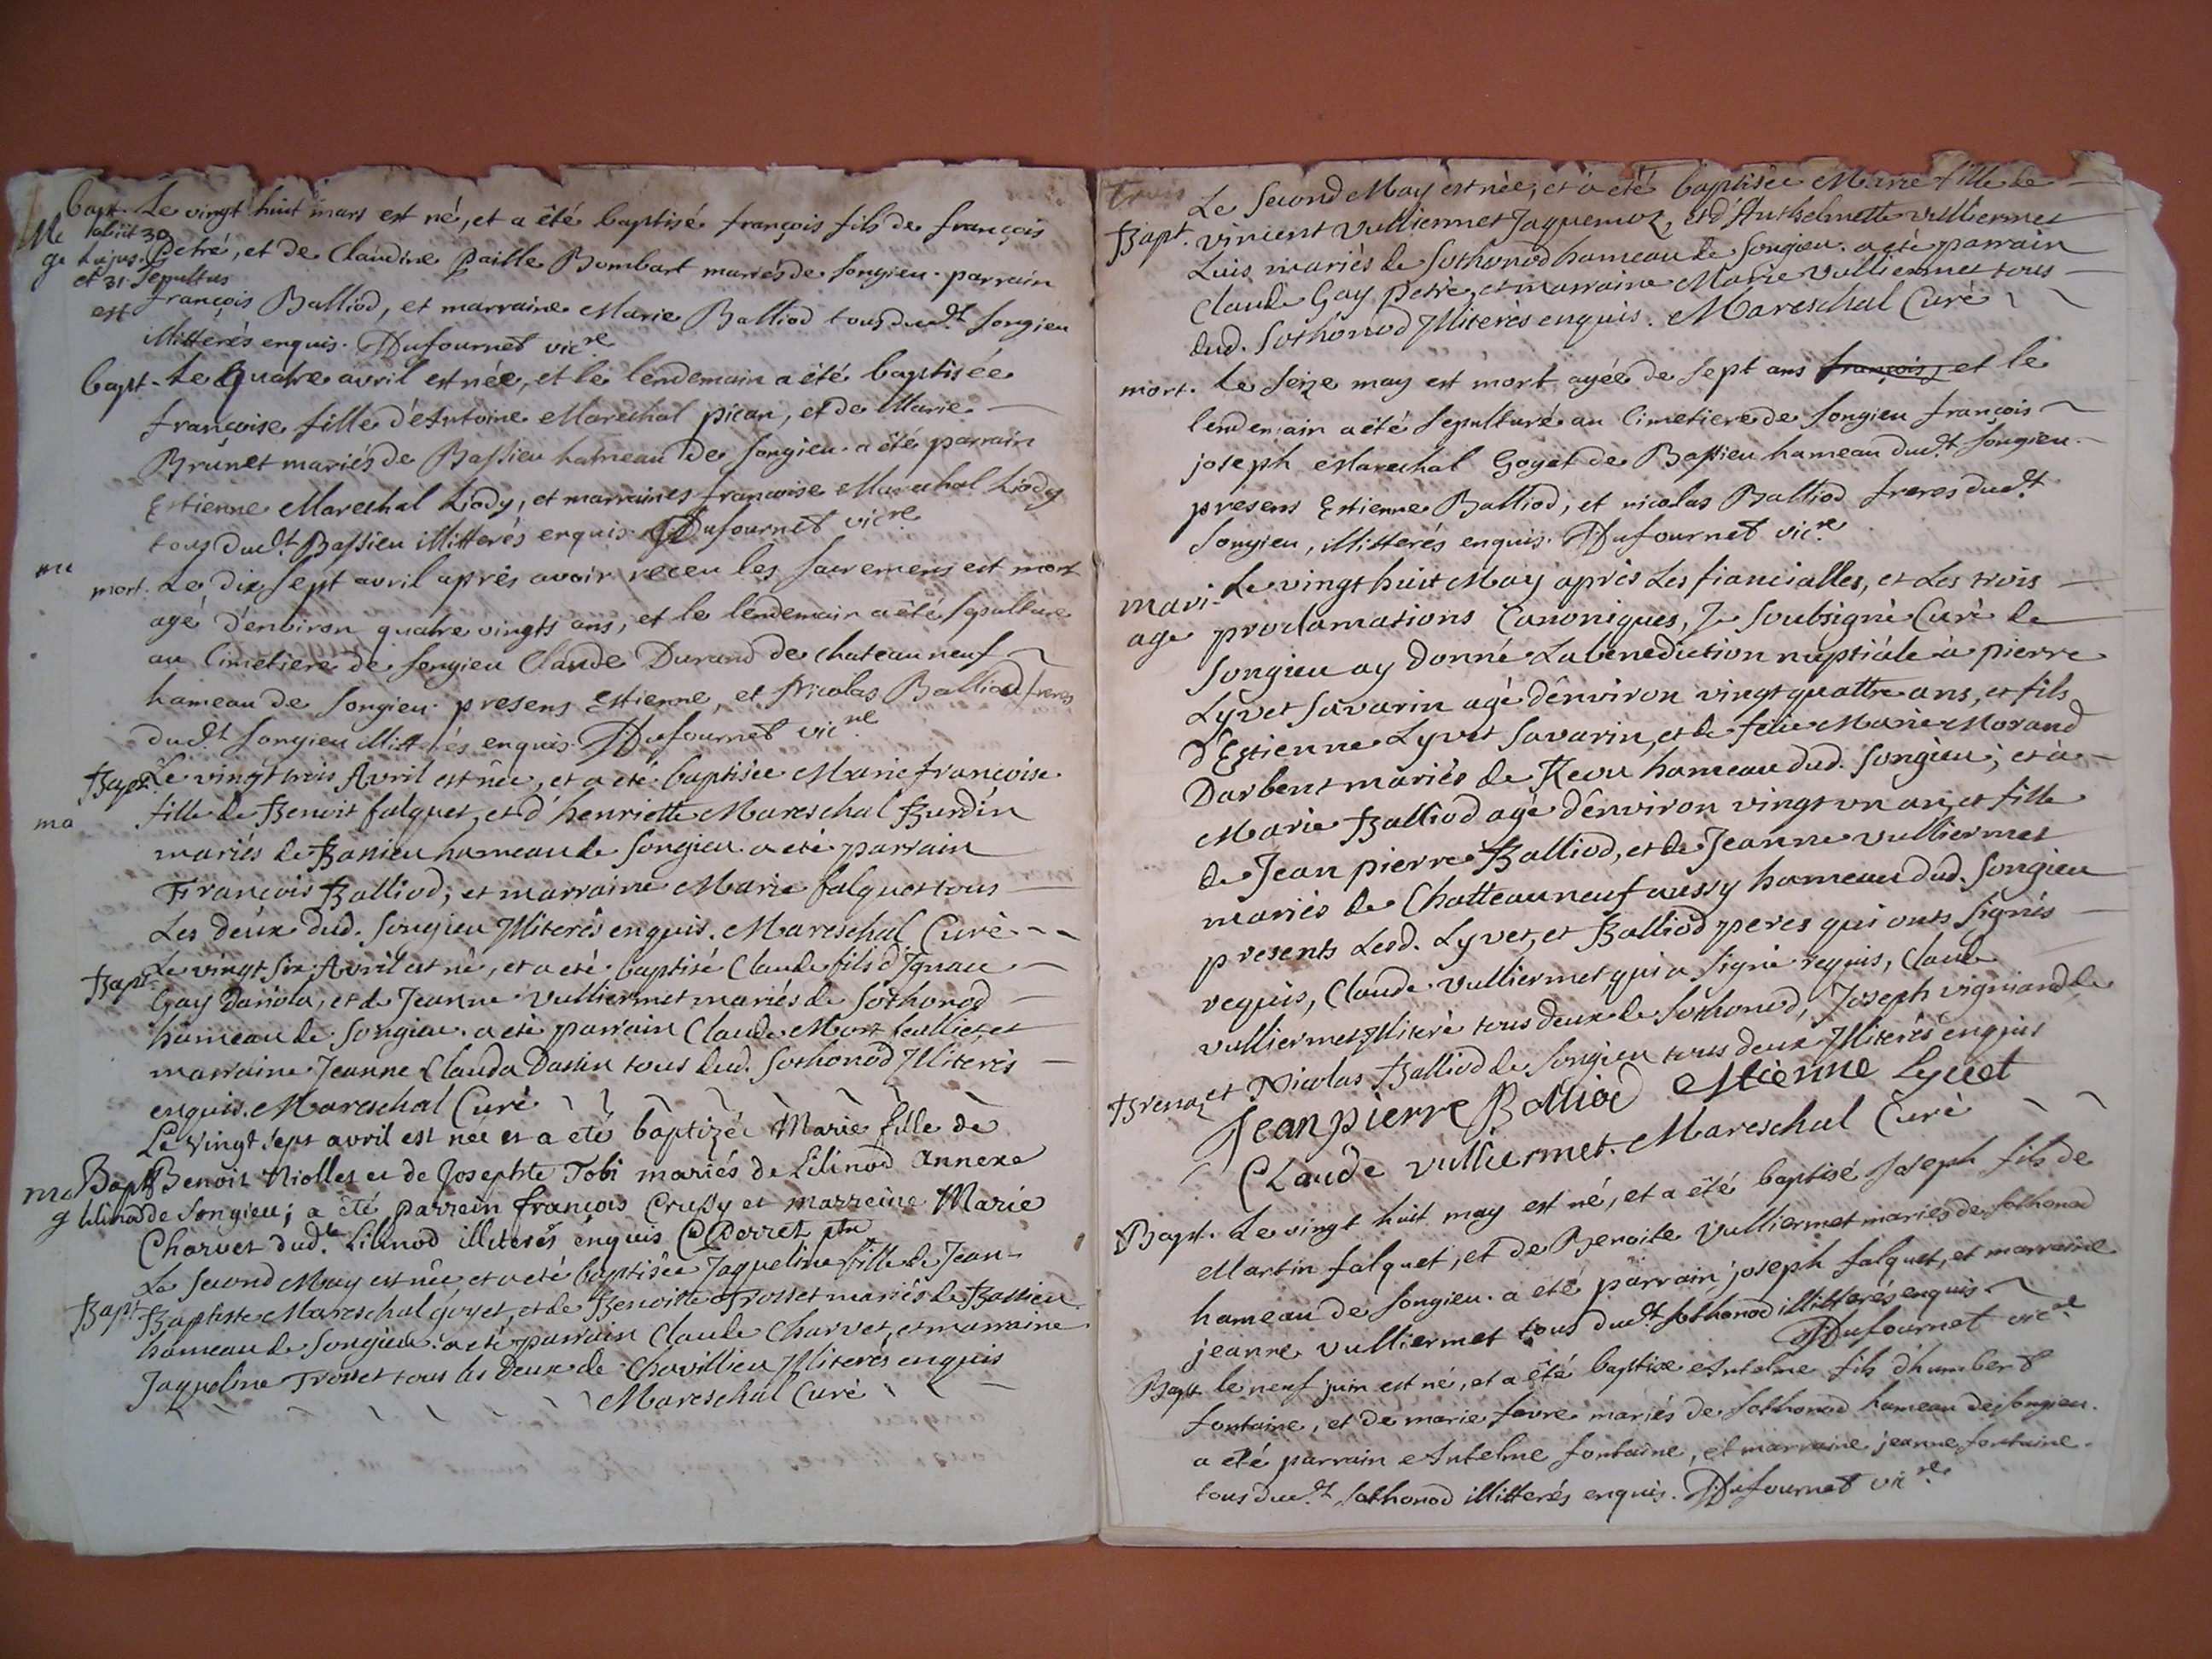 Bapt. Le vingt huit mars est né, et a été baptisé françois fils de françois
obiit 30 hujus Petré, et de Claudine Paille Bombart mariés de Songieu. parrain
et 31 Sepultus est françois Balliod, et marraine Marie Balliod tous dud.t Songieu
illitterés enquis. Dufournet vic.re
bapt. Le Quatre avril est née, et le lendemain a été baptisée
françoise fille d'Antoine Marechal pican, et de Marie
Brunet mariés de Bassieu hameau de Songieu. a été parrain
Estienne Mareschal Liody, et marraines françoise Marechal Liody
tous dud.t Bassieu illitterés enquis. Dufournet vic.re
mort. Le dix sept avril aprés avoir receu les sacremens est mort
agé d'environ quatre vingts ans, et le lendemain a été sepulturé
au Cimetiere de Songieu Claude Durand de chateauneuf
hameau de Songieu. presens Estienne, et Nicolas Balliod freres
dud.t Songieu illitterés enquis. Dufournet vic.re
Bapt. Le vingt trois Avril est née, et a eté baptisée Marie françoise
fille de Benoit falquet, et d'henriette Mareschal Burdin
mariés de Bassieu hameau de Songieu. a eté parrain
François Balliod, et marraine Marie falquet tous
Les deux dud. Songieu Illiterés enquis. Mareschal Curé
Bapt. Le vingt six Avril est né, et a eté baptisé Claude fils d'Ignace
Gay Dariola, et de Jeanne Vulliermet mariés de Sothonod
hameau de Songieu. a eté parrain Claude Mort et
marraine Jeanne Clauda Dassin tous dud. Sothonod Illiterés
enquis. Mareschal Curé
Le vingt sept avril est née et a eté baptizée Marie fille de
Bapt Benoit Niollet et de Josephte Tobi mariés de Lilinod annexe
lilinod de Songieu; a été parrein françois Crussy et marreine Marie
Charvet dud.t Lilinod illiterés enquis Perret ptre
Le second May est née et a eté baptisée Jaqueline fille de Jean
Bapt Baptiste Mareschal goyet, et de Benoitte Trosset mariés de Bassieu
hameau de Songieu. a eté parrain Claude Charvet, et marraine
Jaqueline Trosset tous les deux de Chavillieu Illiterés enquis
Mareschal Curé
trois
Le second May est née, et a eté baptisée Marie fille de
Bapt. vincent Vulliermet Jaquemoz, et d'Anthelmette Vulliermet
Luis mariés de Sothonod hameau de Songieu. a eté parrain
Claude Gay Petre, et marraine Marie Vulliermet tous
dud. Sothonod Illiterés enquis. Mareschal Curé
mort. Le seize may est mort agée de sept ans françois, et le
lendemain a été sepulturé au Cimetiere de Songieu françois
joseph Marechal Goyet de Bassieu hameau dud.t Songieu.
presens Estienne Balliod, et nicolas Balliod freres dud.t
Songieu, illitterés enquis. Dufournet vic.re
mariage Le vingt huit May aprés Les fiancialles, et Les trois
proclamations Canoniques, Je soubsigné Curé de
Songieu ay donné La bénediction nuptiale à pierre
Lyvet Savarin agé d'environ vingt quattre ans, et fils
d'Estienne Lyvet Savarin, et de feüe Marie Morand
Darbent mariés de hameau dud. Songieu; et à
Marie Balliod agé d'environ vingt un an, et fille
de Jean pierre Balliod, et de Jeanne Vulliermet
mariés de Chatteauneuf aussy hameau dud. Songieu
presents Lesd. Lyvet, et Balliod peres qui onts signés
requis, Claude Vulliermet qui a signé requis, Claude
Vulliermet Illiteré tous deux de Sothonod, Joseph vigniand de
Brenaz, et Nicolas Balliod de Songieu tous deux Illiterés enquis
Jeanpierre Balliod Estienne Lyvet
Claude Vulliermet. Mareschal Curé
Bapt. Le vingt huit may est né, et a été baptisé Joseph fils de
Martin falquet, et de Benoite Vulliermet mariés de Sothonod
hameau de Songieu. a été parrain joseph falquet, et marraine
jeanne Vulliermet tous dud.t Sothonod illitterés enquis
Dufournet vic.re
Bapt. le neuf juin est né, et a été baptisé Antelme fils d'humbert
fontaine, et de marie favre mariés de Sothonod hameau de Songieu.
a été parrain Antelme fontaine, et marraine jeanne fontaine.
tous dud.t Sothonod illitterés enquis. Dufournet vic.re